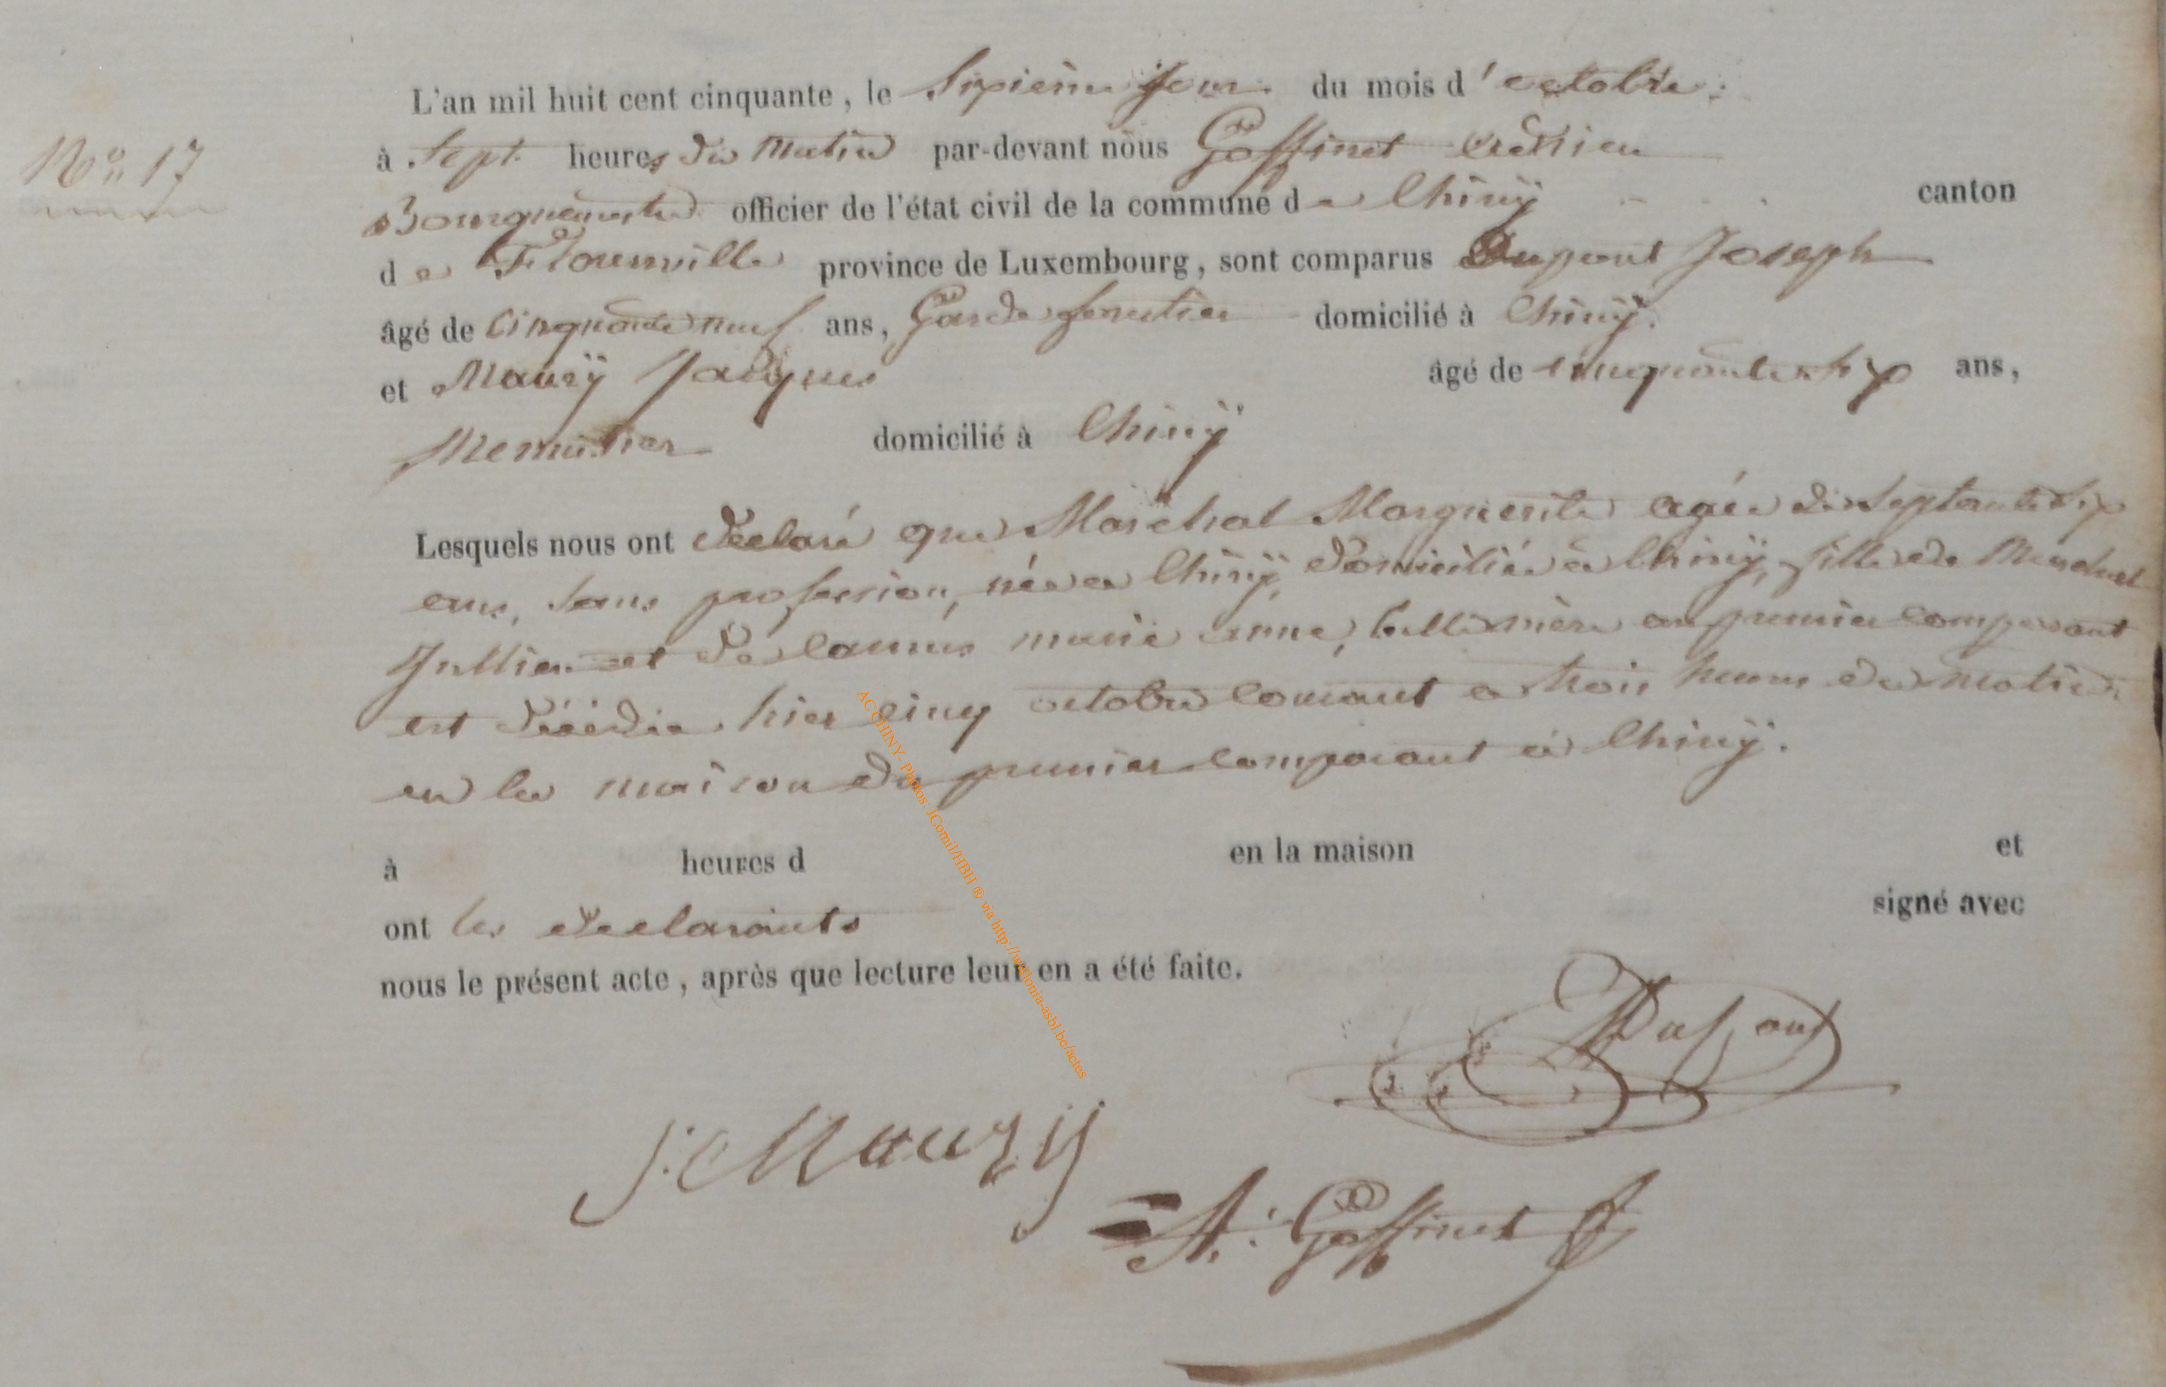 L'an mil huit cent cinquante, le sixième jour du mois d'octobre
No. 17
à sept heures du matin par-devant nous Goffinet
Bourguemestre officier de l'état civil de la commune de Chinÿ canton
de Florenville province de Luxembourg, sont comparus Dupont Joseph
âgé de cinquante neuf ans, Garde forestier domicilié à Chinÿ.
et Maurÿ Jacques âgé de cinquante six ans,
Menuisier domicilié à Chinÿ
Lesquels nous ont déclaré que Maréchal Marguerite agée de septante six
ans, sans profession, née a Chinÿ, domiciliée à Chinÿ, fille de Marechal
Jullien et de marie anne, belle mère au premier comparant
est décédée hier cinq octobre courant a trois heures du matin
en la maison du premier comparant à Chinÿ.
à heures d en la maison et
ont les declarants signé avec
nous le présent acte, après que lecture leur en a été faite.
Dupont
J. Maurÿ
A. Goffinet
AC CHINY - Photos JCornil/HBH ® via http://wallonia-asbl.be/actes